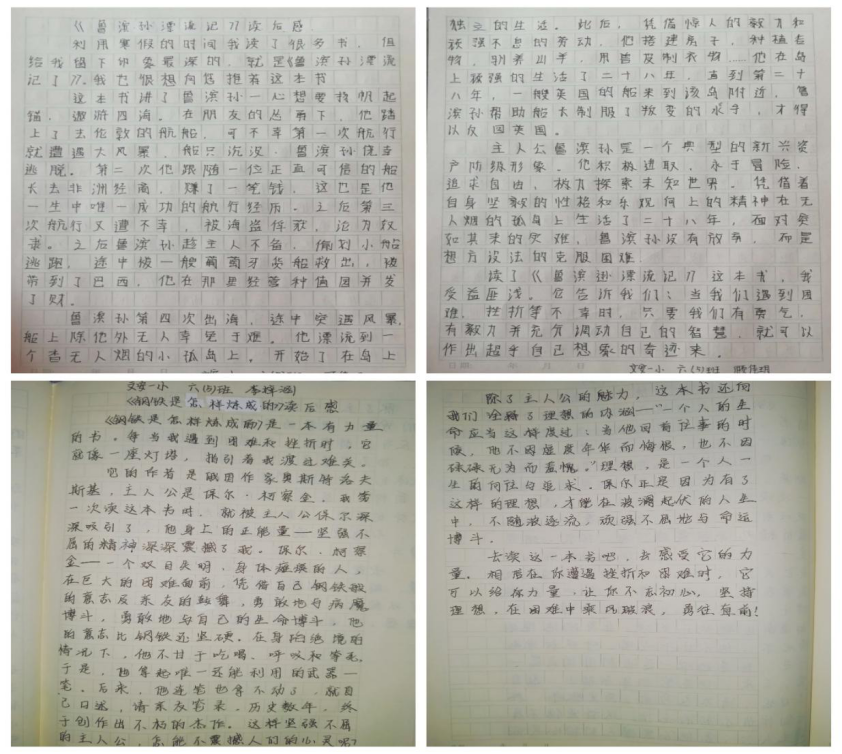 《鲁滨孙漂流记》读后感
利用寒假的时间我读了很多书，但
给我留下印象最深的，就是《鲁滨孙漂流
记了》。我也很想向您推荐这本书
这本书讲了鲁滨孙一心想要扬帆起
锚，遨游四海。在朋友的怂恿下，他踏
上了去伦敦的航船，可不幸第一次航行
就遭遇大风暴，船只沉没，鲁滨孙侥幸
逃脱。第二次他跟随一位正直可信的船
长去非洲经商，赚了一笔钱，这也是他
一生中唯一成功的航行经历。之后第三
次航行又遭不幸，被海盗俘获，沦为奴
隶。之后鲁滨孙趁主人不备，偷划小船
逃跑，途中被一艘葡萄牙货船救出，被
带到了巴西，他在那里经营种植园并发
了财。
鲁滨孙第四次出海，途中突遇风暴，
船上除他外无人幸免于难。他漂流到一
个杳无人烟的小孤岛上。开始了在岛上
独立的生活。此后，凭借惊人的毅力和
顽强不息的劳动，他搭建房子，种植谷
物，驯养山羊，用兽皮制衣物……他在岛
上顽强的生活了二十八年，直到第二十
八年，一艘英国的船来到该岛附近，鲁
滨孙帮助船长制服了叛变的水手，才得
以返回英国。
主人公鲁滨孙是一个典型的新兴资
产阶级形象。他积极进取，永于冒险，
追求自由，极力探索未知世界。凭借着
自身坚毅的性格和乐观向上的精神在无
人烟的孤岛上生活了二十八年，面对突
如其来的灾难，鲁滨孙没有放弃，而是
想方设法的克服困难。
读了《鲁滨逊漂流记》这本书，我
受益匪浅。它告诉我们：当我们遇到困
难、挫折等不幸时，只要我们有勇气，
有毅力并充分调动自己的智慧，就可以
作出超乎自己想象的奇迹来。
文宝一小 六(5)班
文宝一小 六(5)班 李梓涵
《钢铁是怎样炼成的》读后感
《钢铁是怎样炼成的》是一本有力量
的书。每当我遇到困难和挫折时，它
就像一座灯塔，指引着我渡过难关。
它的作者是俄国作家奥斯特洛夫
斯基，主人公是保尔·柯察金，我第
一次读这本书时，就被主人公保尔深
深吸引了，他身上的正能量—坚强不
屈的精神深深震撼了我。保尔·柯察
金——一个双目失明、身体瘫痪的人，
在巨大的困难面前，凭借自己钢铁般
的意志及亲友的鼓舞，勇敢地与病魔
博斗，勇敢地与自己的生命博斗，他
的意志比钢铁还坚硬。在身陷绝境的
情况下，他不甘于吃喝、呼吸和等死。
于是，他拿起唯一还能利用的武器—
笔。后来，他连笔也拿不动了，就自
己口述，请亲友笔录，历史数年，终
于创作出不朽的杰作。这样坚强不屈
的主人公，怎能不震撼人们的心灵呢？
除了主人公的魅力，这本书还向
我们诠释了理想的内涵—“一个人的生
命应当这样度过：当他回首往事的时
候，他不因虚度年华而悔恨，也不因
碌碌无为而羞愧。”理想，是一个人一
生的向往与追求。保尔正是因为有了
这样的理想，才能在波澜起伏的人生
中，不随波逐流，顽强不屈地与命运
博斗。
去读这一本书吧，去感受它的力
量。相信在你遭遇挫折和困难时，它
可以给你力量，让你不忘初心，坚持
理想，在困难中乘风破浪，勇往直前！